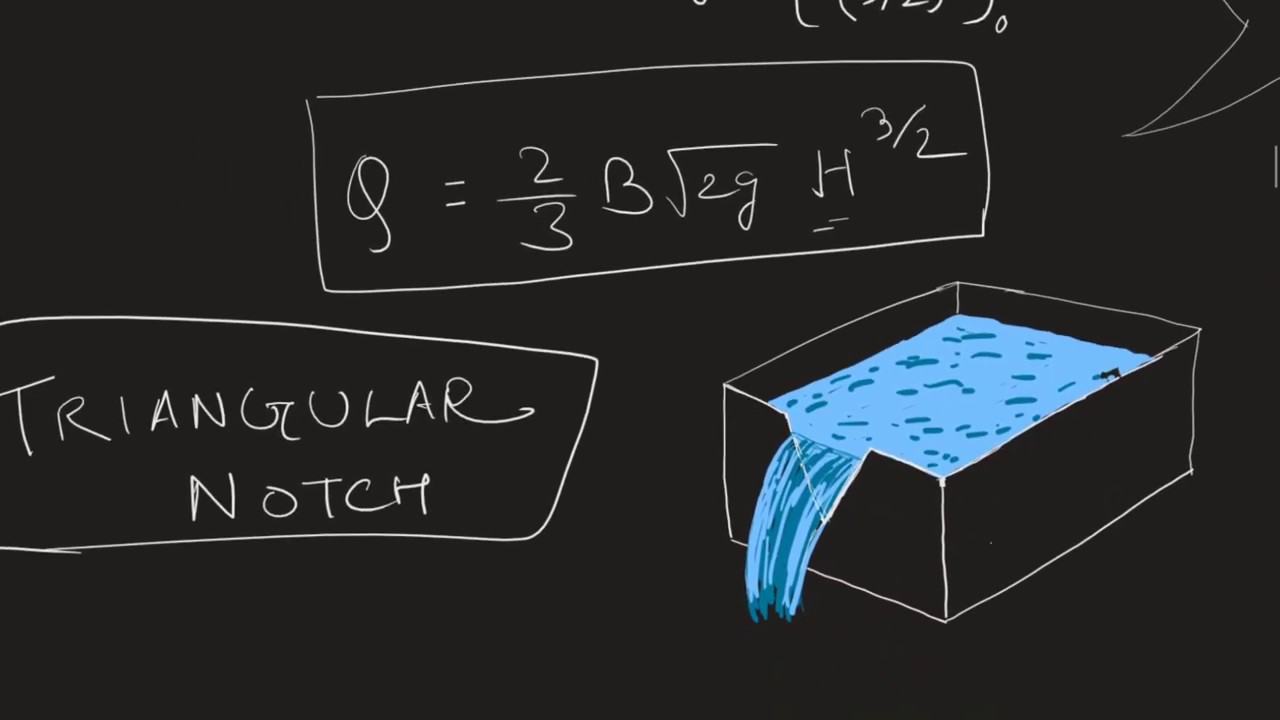 Q = 2/3 B√2g H^3/2
TRIANGULAR
NOTCH